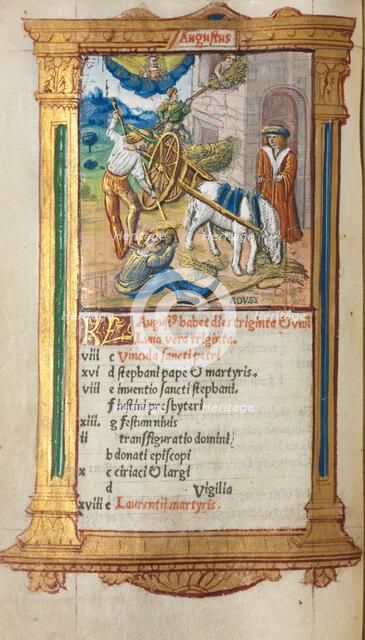 Augustus
AOVST
KL Augustꝰ habet dies triginta & vnū
Luna vero triginta.
viii c Vincula sancti petri
xvi d stephani pape & martyris.
viii e inuentio sancti stephani.
f iustini presbyteri
xiii. g festum niuis
ii transfiguratio domini
b donati episcopi
x c ciriaci & largi
d Vigilia
xviii e Laurentii martyris.
Heritage
Heritage
Heritage